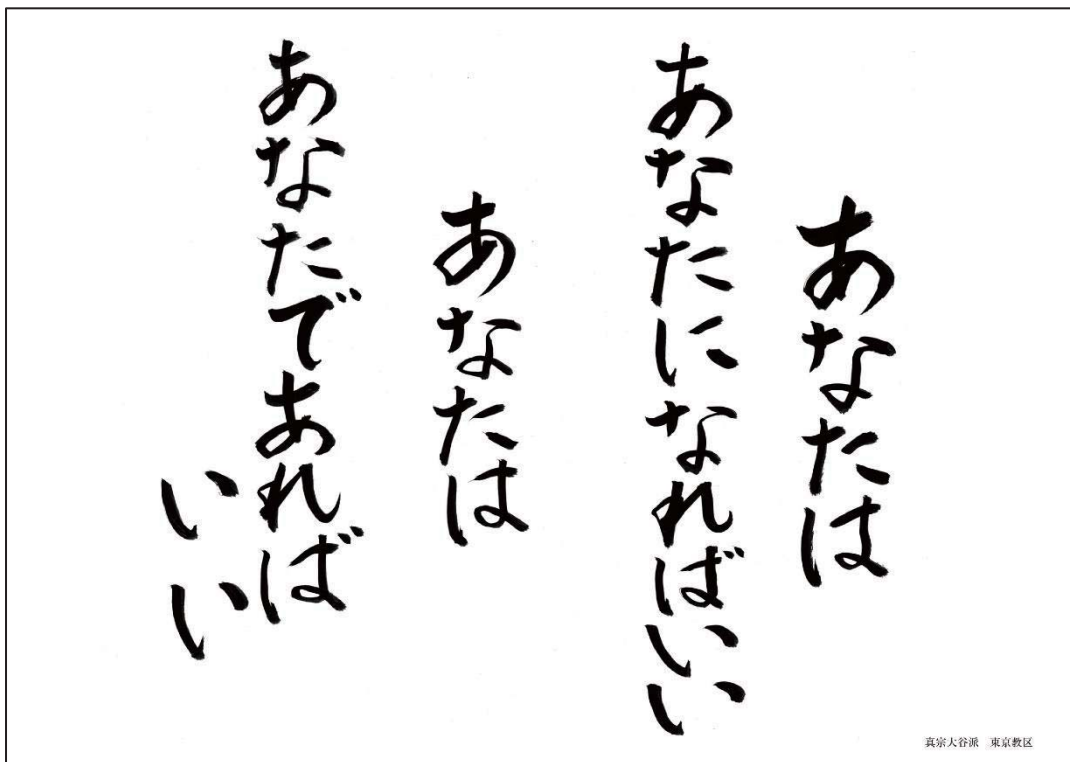 あなたは
あなたになればいい
あなたは
あなたであれば
いい
真宗大谷派　東京教区